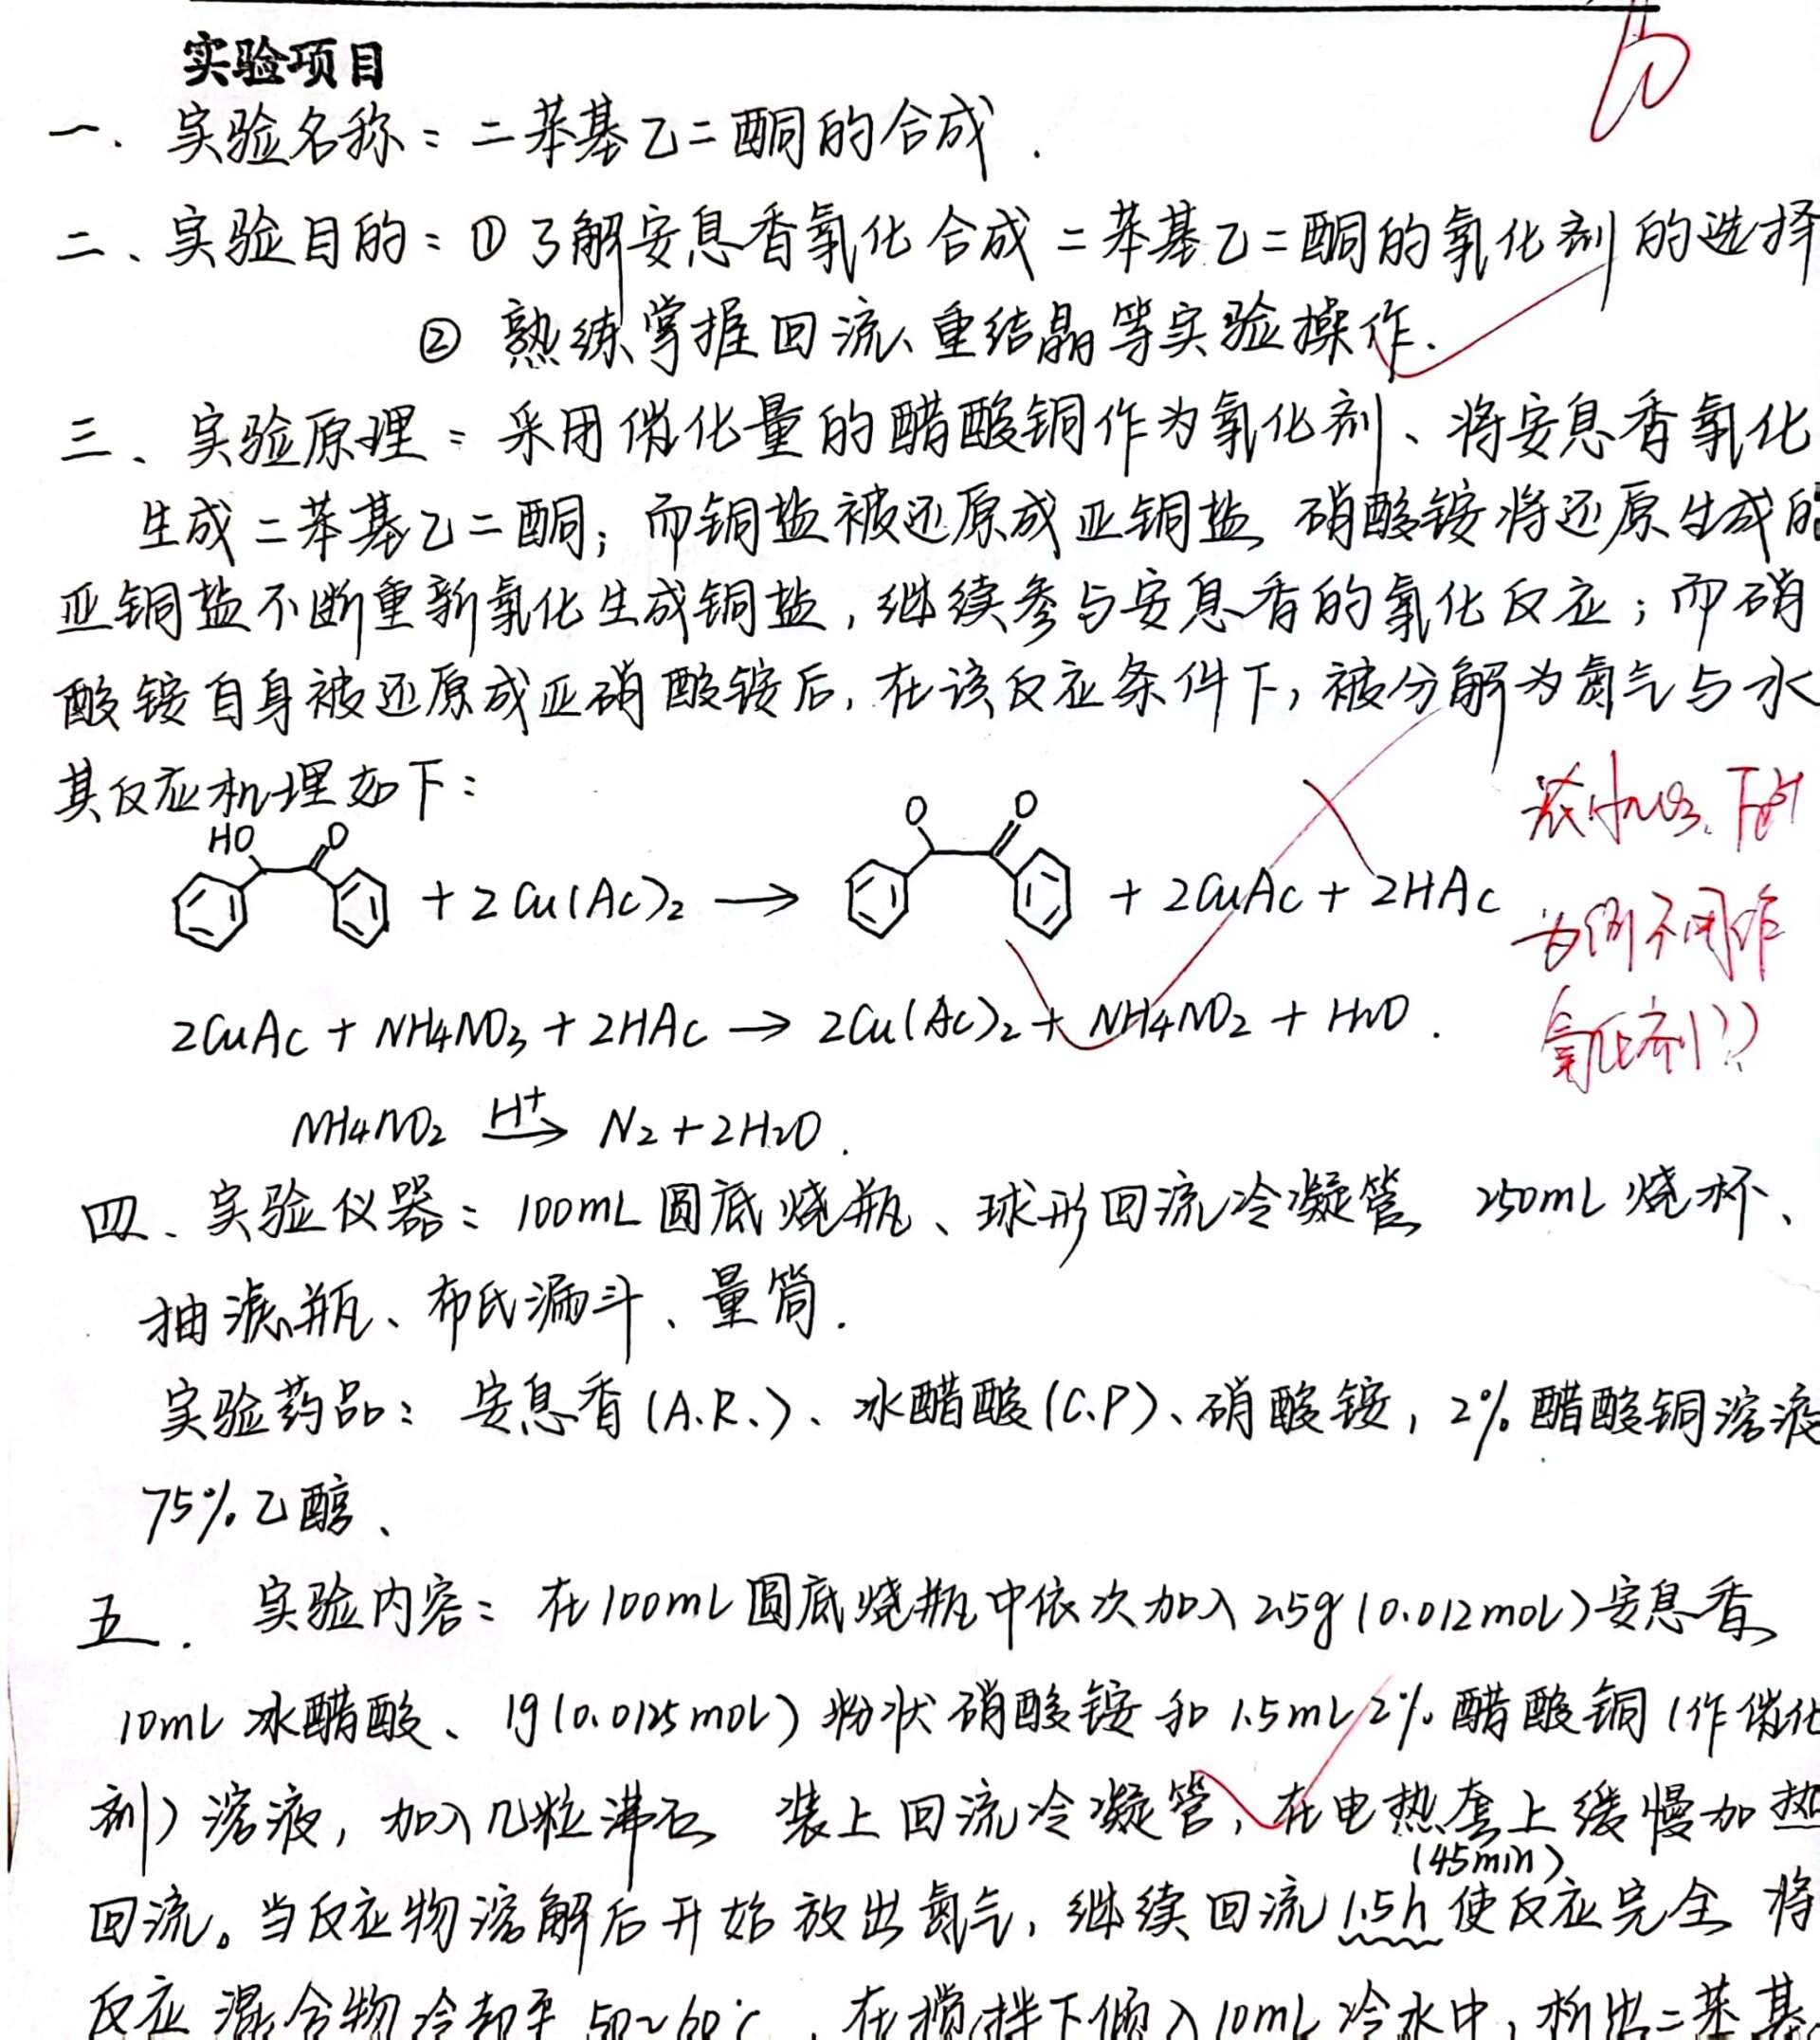 实验项目
一、实验名称:二苯基乙二酮的合成.
二、实验目的:①了解安息香氧化合成二苯基乙二酮的氧化剂的选择
② 熟练掌握回流、重结晶等实验操作.
三、实验原理:采用催化量的醋酸铜作为氧化剂、将安息香氧化
生成二苯基乙二酮;而铜盐被还原成亚铜盐、硝酸铵将还原生成的
亚铜盐不断重新氧化生成铜盐,继续参与安息香的氧化反应;而硝
酸铵自身被还原成亚硝酸铵后,在该反应条件下,被分解为氮气与水
其反应机理如下:
HO O + 2Cu(Ac)2 → O O + 2CuAc + 2HAc
2CuAc + NH4NO3 + 2HAc → 2Cu(Ac)2 + NH4NO2 + H2O.
NH4NO2 H+→ N2+2H2O.
浓HNO3
为何不用作
氧化剂??
四、实验仪器:100mL圆底烧瓶、球形回流冷凝管、250mL烧杯、
抽滤瓶、布氏漏斗、量筒.
实验药品:安息香(A.R.)、冰醋酸(C.P)、硝酸铵,2%醋酸铜溶液
75%乙醇、
五.实验内容:在100mL圆底烧瓶中依次加入2.5g(0.012mol)安息香、
10mL冰醋酸、1g(0.0125mol)粉状硝酸铵和1.5mL2%醋酸铜(作催化
剂)溶液,加入几粒沸石、装上回流冷凝管,在电热套上缓慢加热
(45min)
回流。当反应物溶解后开始放出氮气,继续回流1.5h使反应完全、将
反应混合物冷却至50~60℃,在搅拌下倾入10mL冷水中,析出二苯基